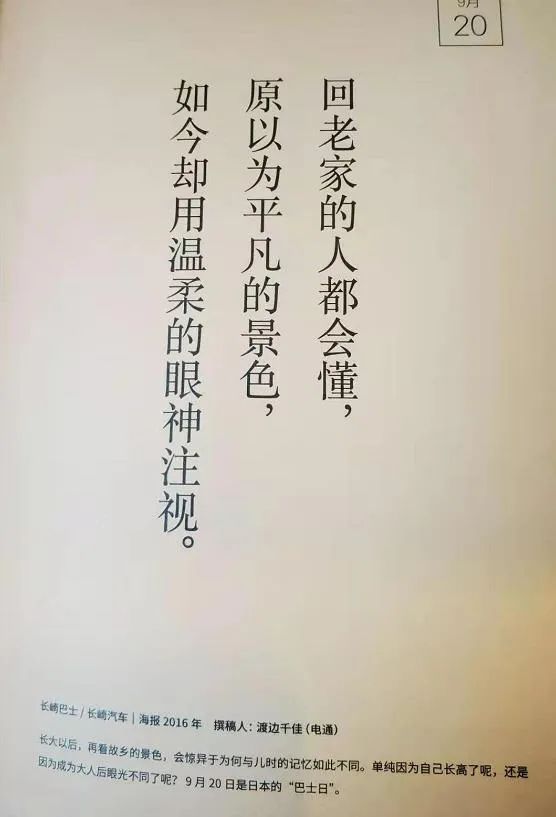 9月
20
回老家的人都会懂，
原以为平凡的景色，
如今却用温柔的眼神注视。
长崎巴士/长崎汽车｜海报 2016 年　撰稿人：渡边千佳（电通）
长大以后，再看故乡的景色，会惊异于为何与儿时的记忆如此不同。单纯因为自己长高了呢，还是
因为成为大人后眼光不同了呢？ 9 月 20 日是日本的“巴士日”。